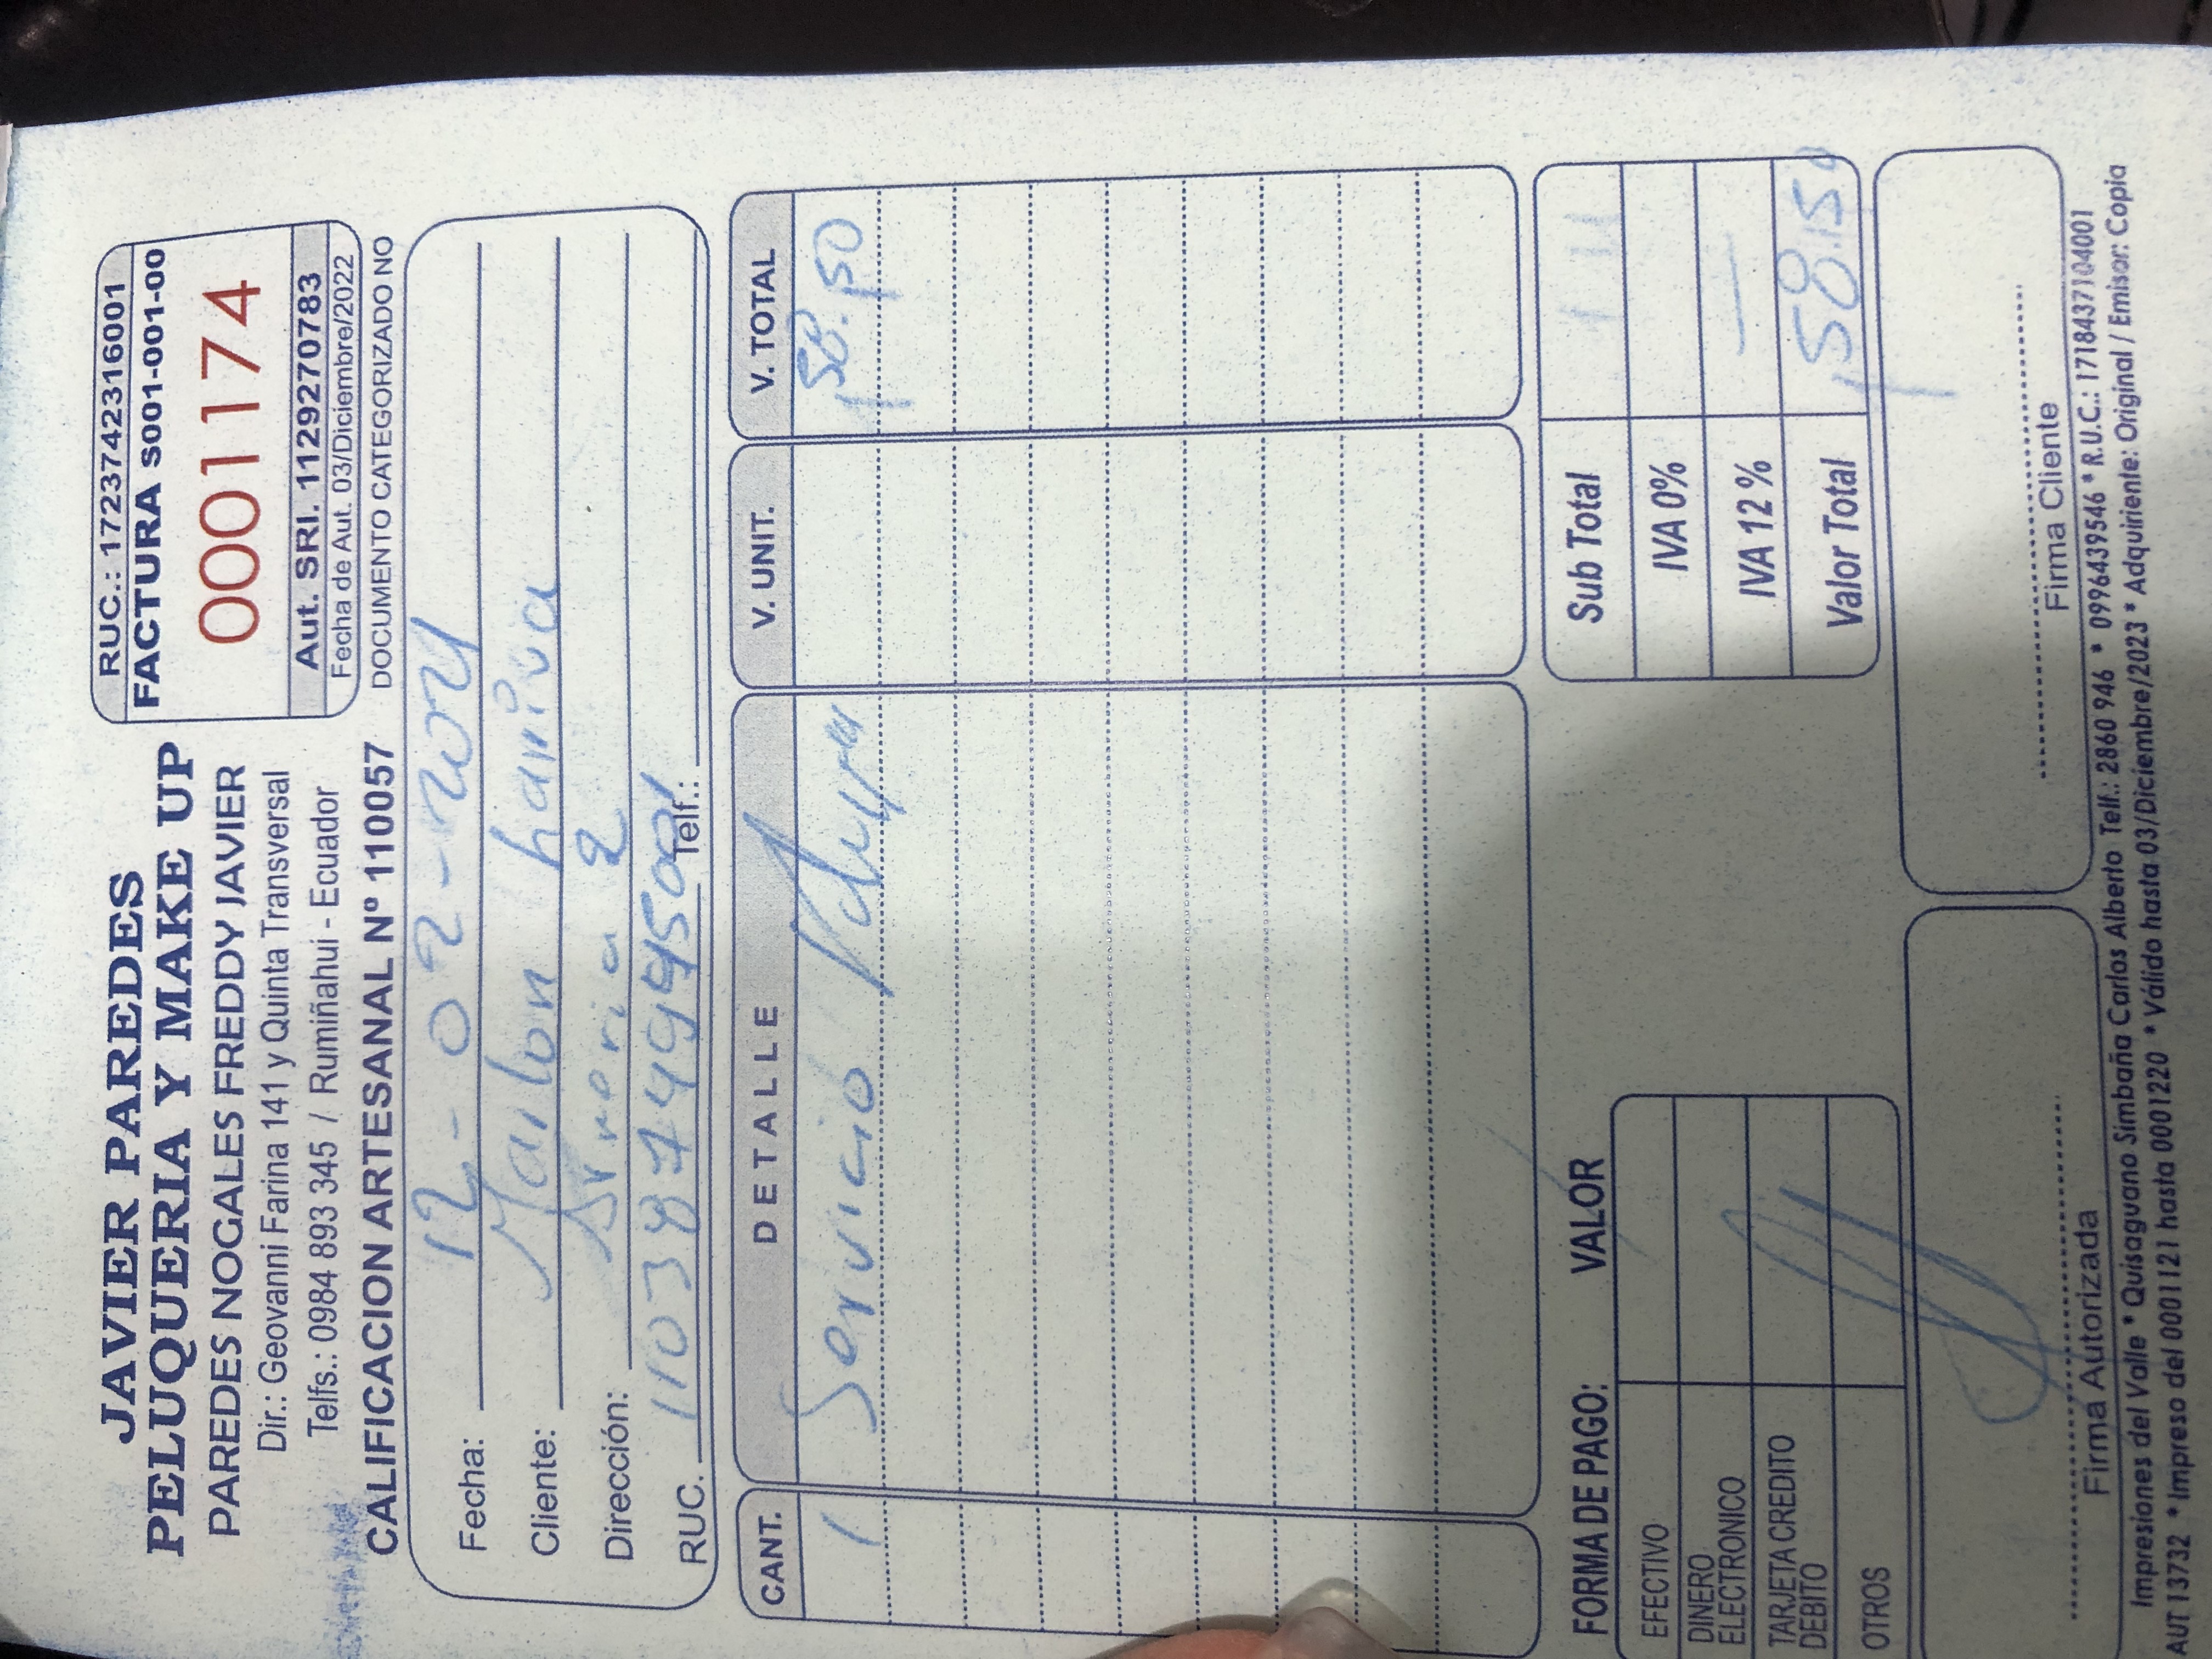 JAVIER PAREDES
PELUQUERIA Y MAKE UP
PAREDES NOGALES FREDDY JAVIER
Dir.: Geovanni Farina 141 y Quinta Transversal
Telfs.: 0984 893 345 / Rumiñahui - Ecuador
CALIFICACION ARTESANAL Nº 110057
RUC.: 1723742316001
FACTURA S001-001-00
0001174
Aut. SRI. 1129270783
Fecha de Aut. 03/Diciembre/2022
DOCUMENTO CATEGORIZADO NO
Fecha: 12-02-2021
Cliente: Marlon Larriva
Dirección: 2
RUC. Telf.:
CANT. DETALLE V. UNIT. V. TOTAL
1 Servicio 58.50
FORMA DE PAGO: VALOR
EFECTIVO
DINERO
ELECTRONICO
TARJETA CREDITO
DEBITO
OTROS
Sub Total
IVA 0%
IVA 12 % —
Valor Total 58.50
Firma Autorizada
Firma Cliente
Impresiones del Valle * Quisaguano Simbaña Carlos Alberto Telf.: 2860 946 * 0996439546 * R.U.C.: 1718437104001
AUT 13732 * Impreso del 0001121 hasta 0001220 * Válido hasta 03/Diciembre/2023 * Adquiriente: Original / Emisor: Copia